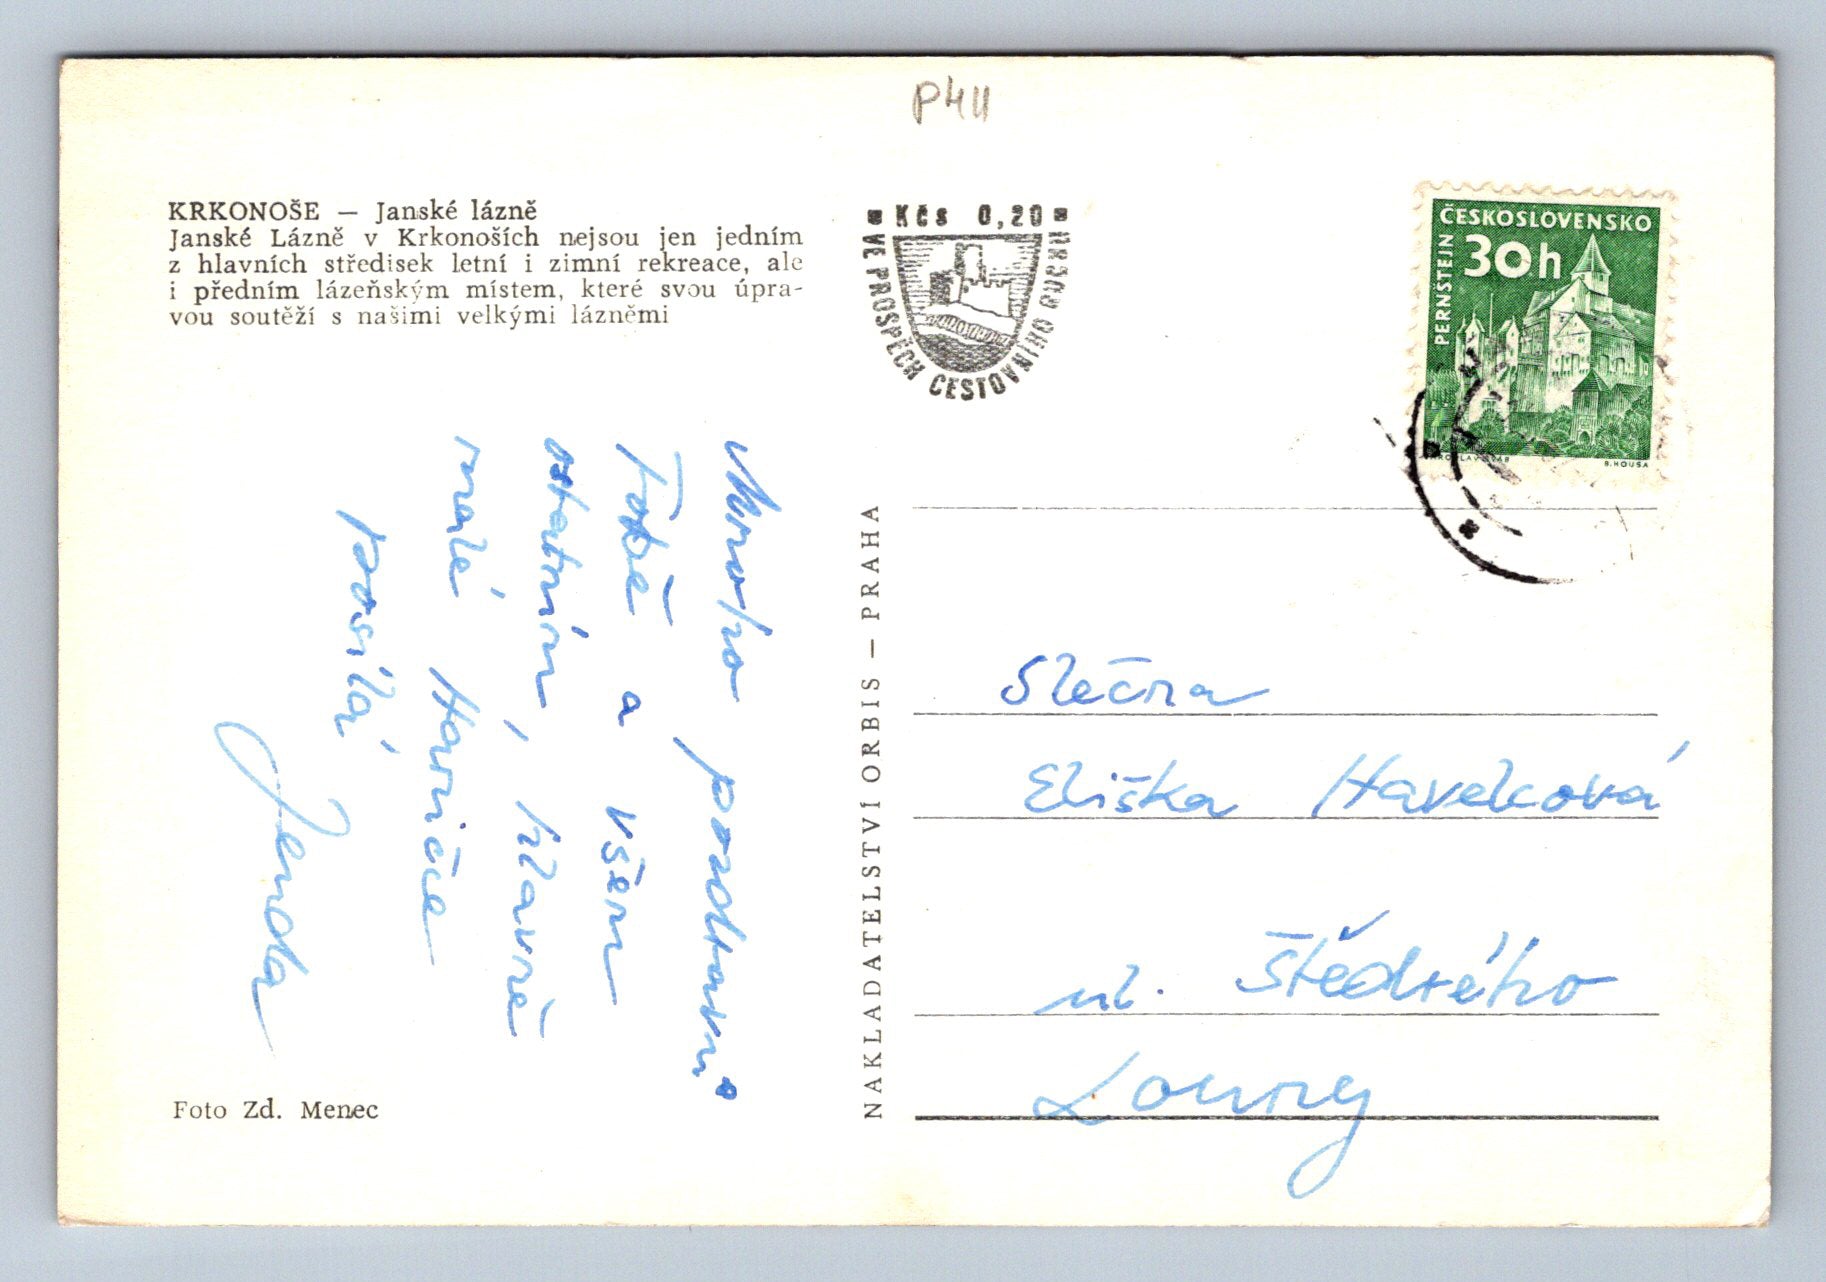 P411
KRKONOŠE — Janské lázně
Janské Lázně v Krkonoších nejsou jen jedním
z hlavních středisek letní i zimní rekreace, ale
i předním lázeňským místem, které svou úpra-
vou soutěží s našimi velkými lázněmi
Kčs 0,20
VE PROSPĚCH CESTOVNÍHO RUCHU
ČESKOSLOVENSKO
30h
PERNŠTEJN
JAROSLAV ŠVÁB
B. HOUSA
Mnoho pozdravů
Tobě a všem
ostatním, hlavně
malé Haničce
posílá
Jenda
NAKLADATELSTVÍ ORBIS — PRAHA
Slečna
Eliška Havelcová
ul. Štědrého
Louny
Foto Zd. Menec